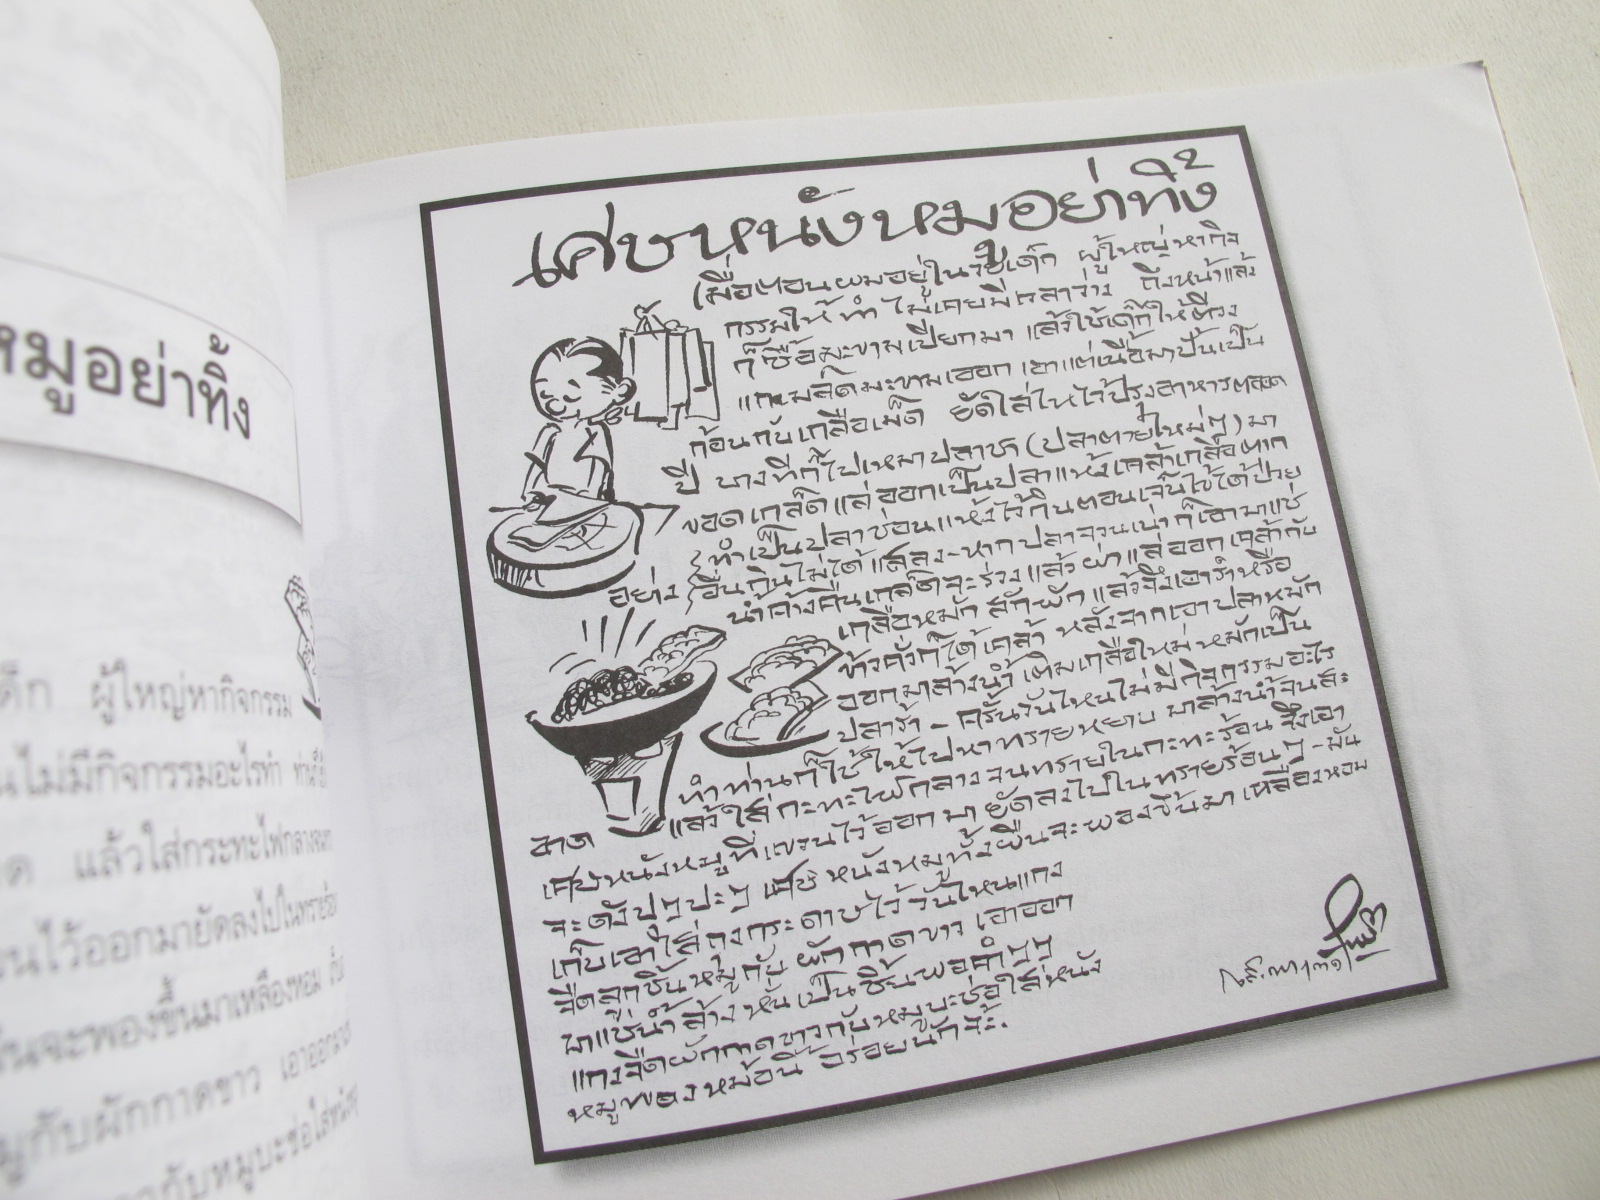 หมูอย่าทิ้ง
ด็ก ผู้ใหญ่หากิจกรรม
นไม่มีกิจกรรมอะไรทำ ท่านก็ใช้
แล้วใส่กระทะไฟกลาง
นไว้ออกมายัดลงไปในทราย
นจะพองขึ้นมาเหลืองหอม
มูกับผักกาดขาว เอาออก
กับหมูบะช่อใส่หนัง
เศษหนังหมูอย่าทิ้ง
เมื่อตอนผมอยู่ในวัยเด็ก ผู้ใหญ่หากิจ
กรรมให้ทำ ไม่เคยมีเวลาว่าง ถึงหน้าแล้ง
ก็ซื้อมะขามเปียกมา แล้วใช้เด็กให้
แกะเมล็ดมะขามออก เอาแต่เนื้อมาปั้นเป็น
ก้อนกับเกลือเม็ด ยัดใส่ไหไว้ปรุงอาหารตลอด
ปี บางทีก็ไปเหมาปลาช่า (ปลาตายใหม่ๆ) มา
ขอดเกล็ดแล่ออกเป็นปลาแห้งเคล้าเกลือตาก
ทำเป็นปลาช่อนแห้งไว้กินตอนเจ็บไข้ได้ป่วย
อย่างอื่นกินไม่ได้แสลง หากปลาจวนเน่าก็เอามาแช่
น้ำค้างคืนเกล็ดจะร่วงแล้วผ่าแล่ออกเคล้ากับ
เกลือหมัก สักพักแล้วจึงเอารำหรือ
ข้าวคั่วก็ได้เคล้า หลังจากเอาปลาหมัก
ออกมาล้างน้ำเติมเกลือใหม่หมักเป็น
ปลาร้า - ครั้นวันไหนไม่มีกิจกรรมอะไร
ทำท่านก็ใช้ให้ไปหาทรายหยาบ มาล้างน้ำจนสะ
อาด แล้วใส่กะทะไฟกลางจนทรายในกะทะร้อน จึงเอา
เศษหนังหมูที่แขวนไว้ออกมา ยัดลงไปในทรายร้อนๆ - มัน
จะดังปุๆปะๆ เศษหนังหมูทั้งผืนจะพองขึ้นมาเหลืองหอม
เก็บเอาใส่ถุงกระดาษไว้วันไหนแกง
จืดลูกชิ้นหมูกับผักกาดขาว เอาออก
มาแช่น้ำล้างหั่นเป็นชิ้นพอคำๆ
แกงจืดผักกาดขาวกับหมูบะช่อใส่หนัง
หมูพองหม้อนี้ อร่อยนักจ้ะ.